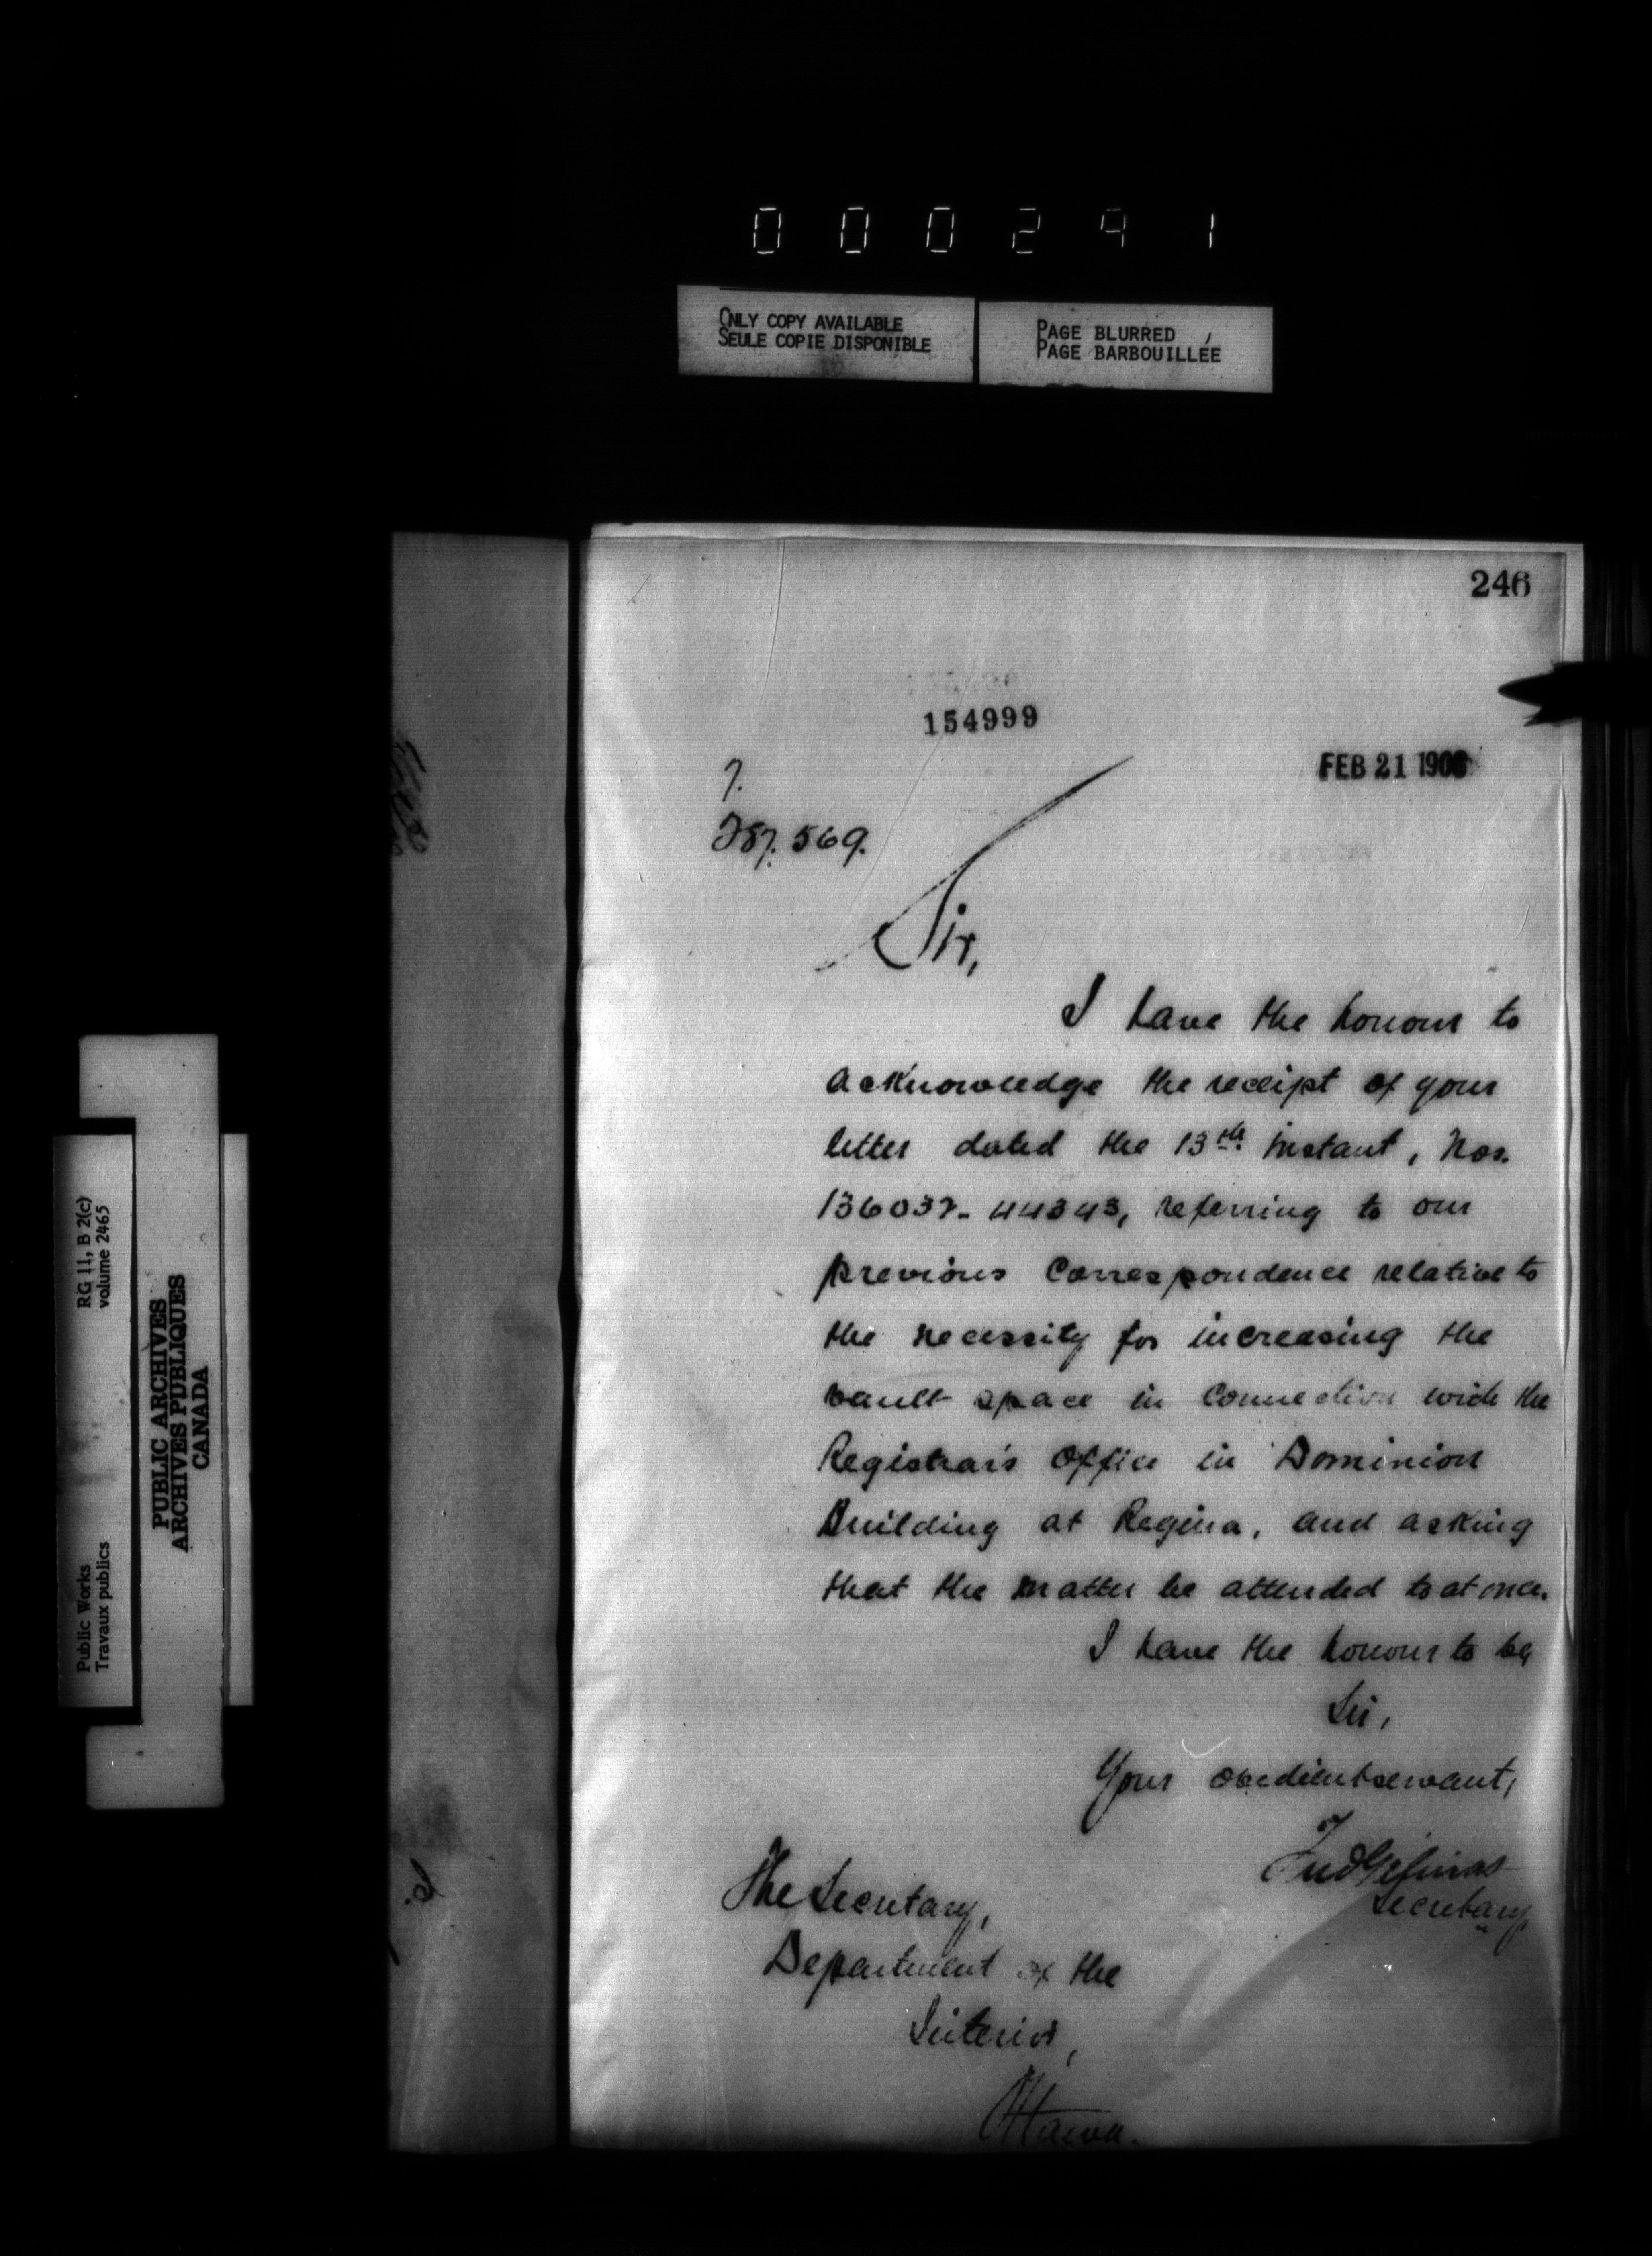 000291
ONLY COPY AVAILABLE
SEULE COPIE DISPONIBLE
PAGE BLURRED
PAGE BARBOUILLÉE
246
154999
FEB 21 190
7.
287.569.
Sir,
I have the honour to
acknowledge the receipt of your
letter dated the 13th instant, Nos.
136037-44343, referring to our
previous correspondence relative to
the necessity for increasing the
vault space in connection with the
Registrar's Office in Dominion
Building at Regina, and asking
that the matter be attended to at once.
I have the honour to be
Sir,
Your obedient servant,
Fred Gélinas
Secretary
The Secretary,
Department of the
Interior,
Ottawa.
RG 11, B 2(c)
volume 2465
Public Works
Travaux publics
PUBLIC ARCHIVES
ARCHIVES PUBLIQUES
CANADA